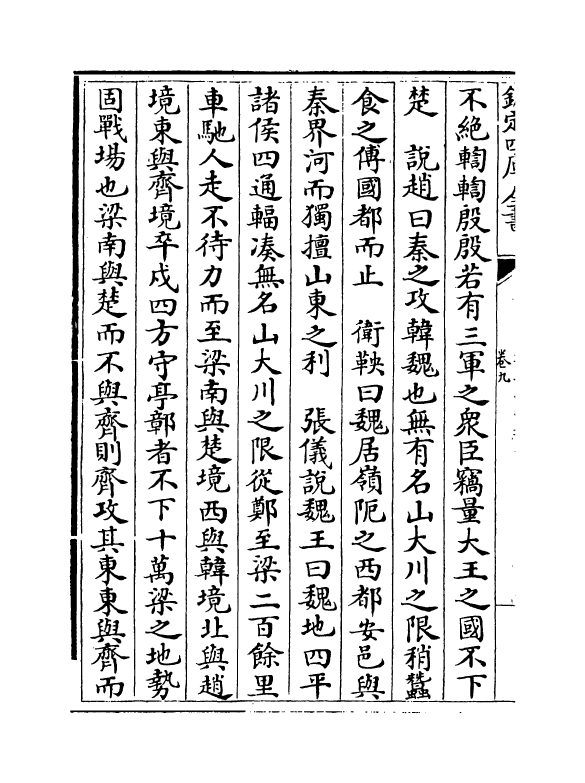 欽定四庫全書
卷九
不絶輷輷殷殷若有三軍之衆臣竊量大王之國不下
楚　說趙曰秦之攻韓魏也無有名山大川之限稍蠶
食之傅國都而止　衛鞅曰魏居嶺阨之西都安邑與
秦界河而獨擅山東之利　張儀說魏王曰魏地四平
諸侯四通輻湊無名山大川之限從鄭至梁二百餘里
車馳人走不待力而至梁南與楚境西與韓境北與趙
境東與齊境卒戍四方守亭鄣者不下十萬梁之地勢
固戰場也梁南與楚而不與齊則齊攻其東東與齊而